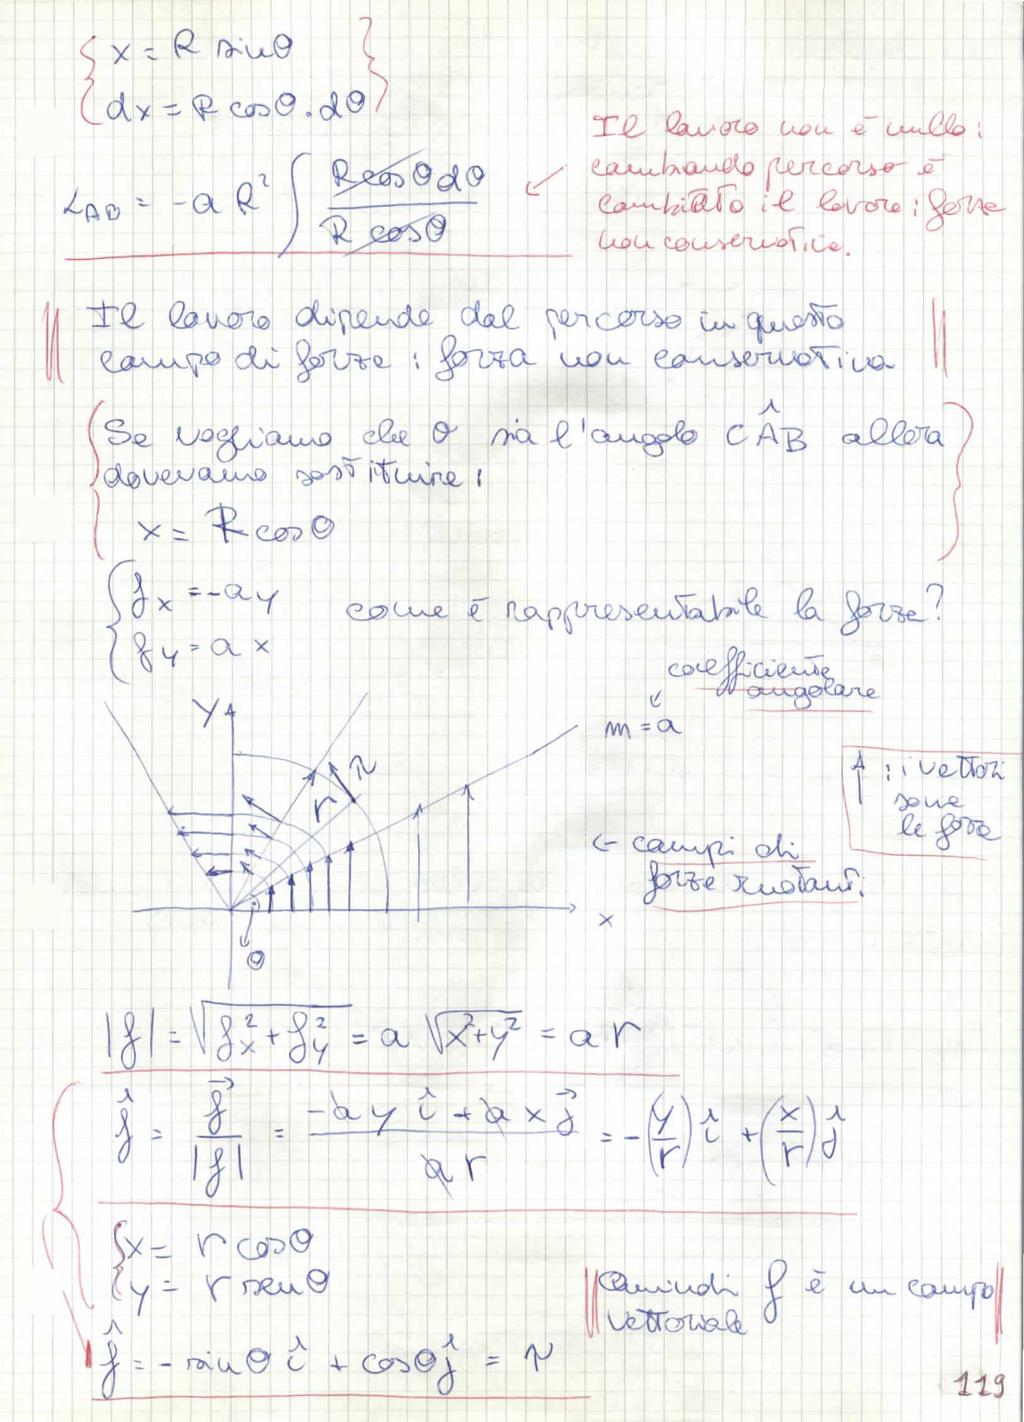 x = R sinθ
dx = R cosθ · dθ
L_AB = -a R² ∫ R cosθ dθ / R cosθ
Il lavoro non è nullo:
cambiando percorso è
cambiato il lavoro: forza
non conservativa.
Il lavoro dipende dal percorso in questo
campo di forze: forza non conservativa
Se vogliamo che θ sia l'angolo CÂB allora
dovevamo sostituire:
x = R cosθ
fx = -ay
fy = ax
come è rappresentabile la forza?
coefficiente
angolare
m = a
Y
r
τ
↑ : i vettori
sono
le forze
← campi di
forze ruotanti.
x
θ
|f| = √(fx² + fy²) = a √(x²+y²) = a r
f̂ = f⃗ / |f| = (-a y î + a x j⃗) / (a r) = -(y/r) î + (x/r) ĵ
x = r cosθ
y = r senθ
Quindi f è un campo
vettoriale
f̂ = - sinθ î + cosθ ĵ = τ
119